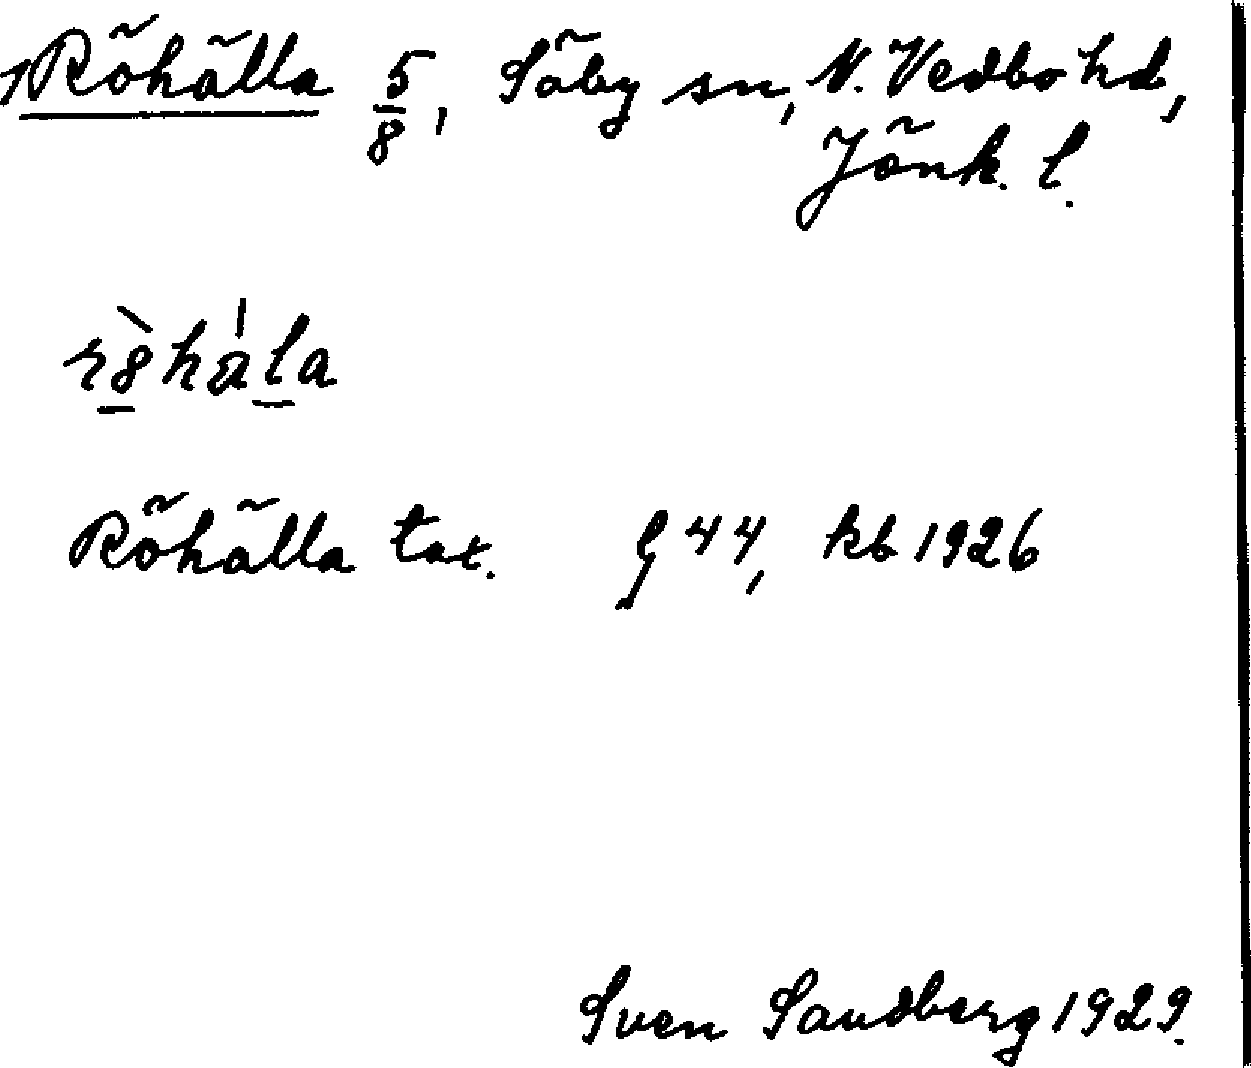 1 Röhälla 5/8, Säby sn, N. Vedbo hd,
Jönk. l.
rö̀hä́la
Röhälla tax. G 44, kb 1926
Sven Sandberg 1929.